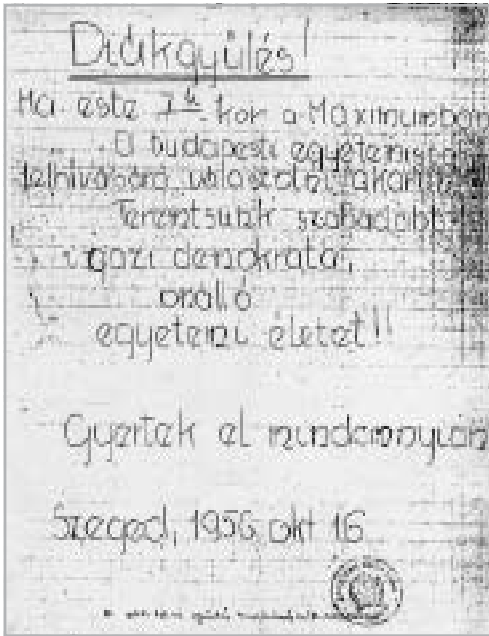 Diákgyűlés!
Ma este 7h-kor a Maximumban
A budapesti egyetemisták
felhívására válaszolni akarunk
Teremtsünk szabadabb
igazi demokratai,
önálló
egyetemi életet!!
Gyertek el mindannyian
Szeged, 1956, okt 16